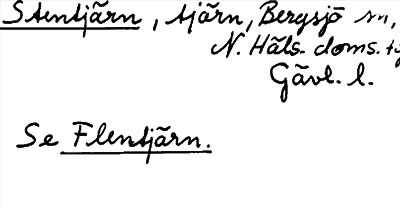 Stentjärn, tjärn, Bergsjö sn,
N. Häls. doms.
Gävl. l.
Se Flentjärn.